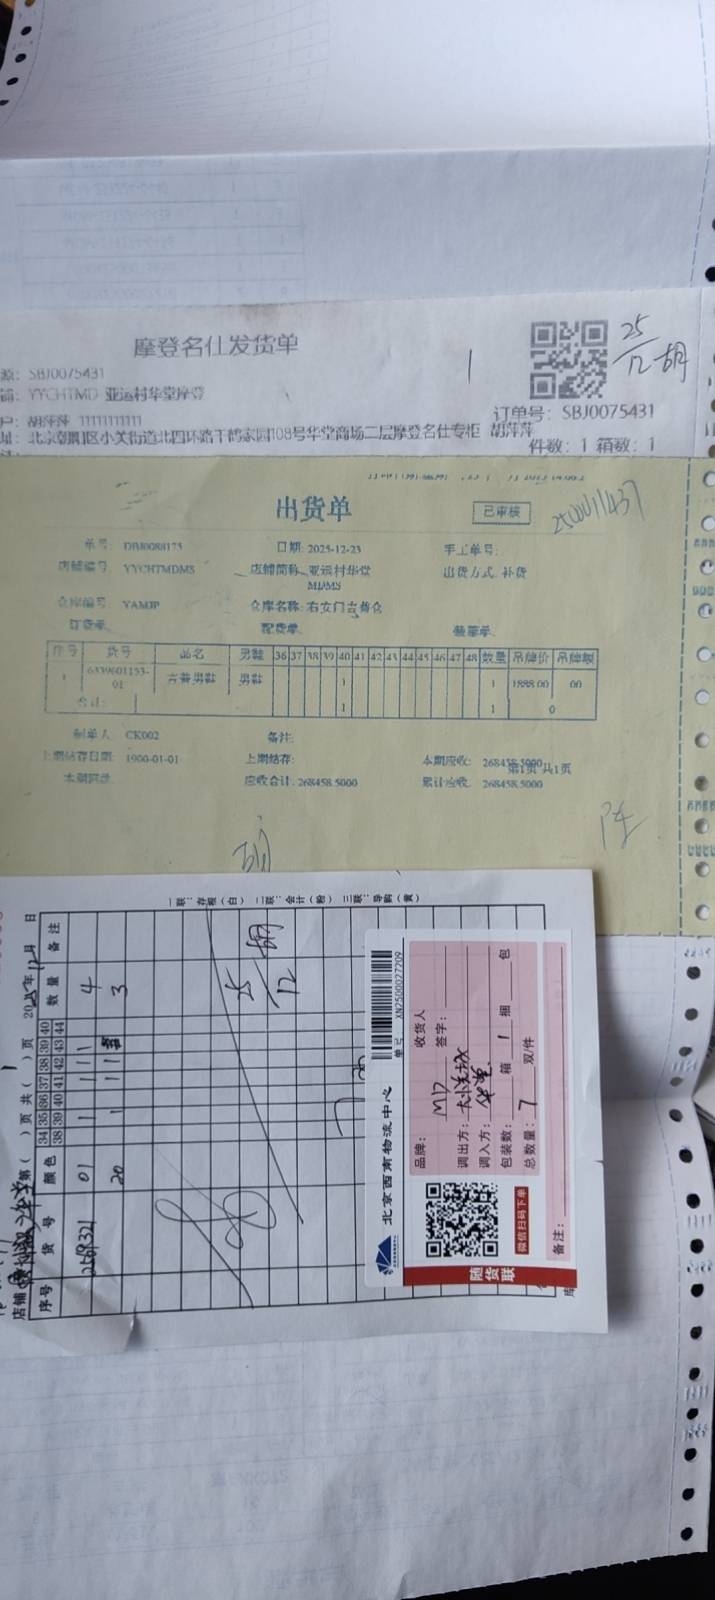 摩登名仕发货单
源: SBJ0075431
YYCHTMD 亚运村华堂摩登
户: 胡萍萍 11111111111
址: 北京朝阳区小关街道北四环路千鹤家园108号华堂商场二层摩登名仕专柜 胡萍萍
1
25/12 胡
订单号: SBJ0075431
件数: 1 箱数: 1
出货单
已审核
单号: DBJ0088175
日期: 2025-12-23
手工单号:
店铺编号: YYCHTMDMS
店铺简称: 亚运村华堂MDMS
出货方式: 补货
仓库编号: YAMJP
仓库名称: 右安门吉普仓
订货单:
配货单:
装箱单:
序号 货号 品名 男鞋 36 37 38 39 40 41 42 43 44 45 46 47 48 数量 吊牌价 吊牌额
1 6339601153-01 男鞋 1 1 1888.00 00
合计: 1 1 0
制单人: CK002
备注:
上期结存日期: 1900-01-01
上期结存:
本期应收: 268458.5000
第1页 共1页
本期回款:
应收合计: 268458.5000
累计应收: 268458.5000
胡
陈
一联: 存根（白） 二联: 会计（粉） 三联: 导购（黄）
店铺
第（ ）页 共（ 1 ）页 2025年12月 日
序号 货号 颜色 34 35 36 37 38 39 40 数量 备注
38 39 40 41 42 43 44
2569321 01 1 1 1 1 4
20 1 1 1 3
25/12 胡
北京西南物流中心
单号 XN2500027209
品牌: MD
收货人
签字:
调出方: 大悦城
调入方: 华堂
包装数: 箱 1 捆 包
总数量: 7 双/件
微信扫码下单
备注:
随货联